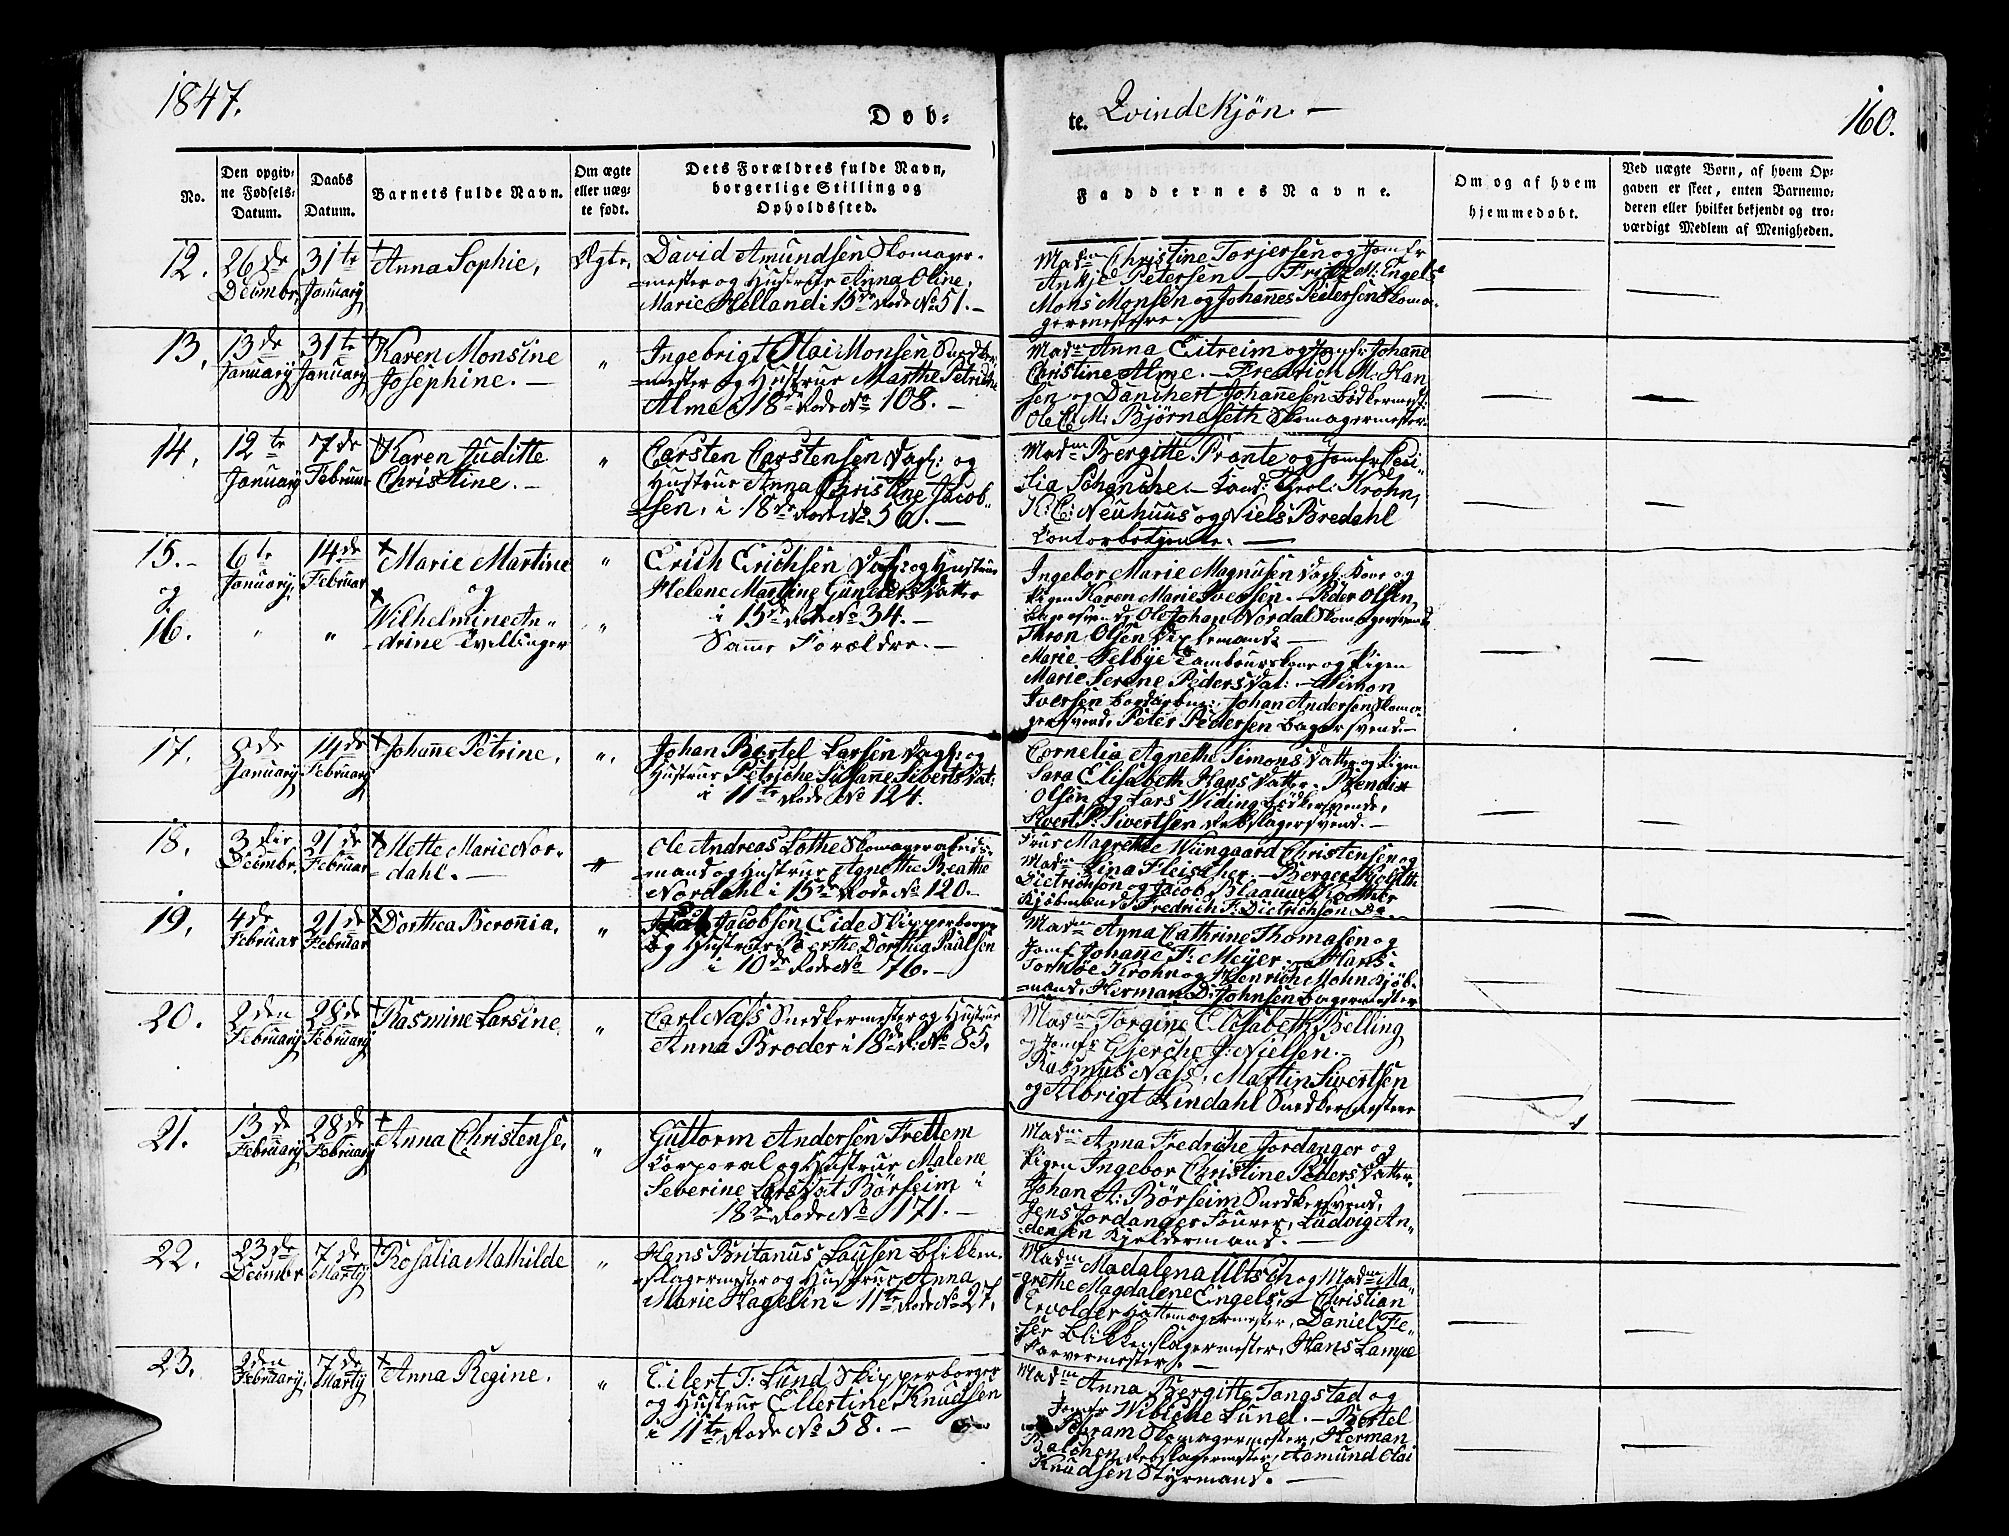 1847.
Døb-
te. Qvindekjøn. —
160.
No.
Den opgiv-
ne Fødsels-
Datum.
Daabs
Datum.
Barnets fulde Navn.
Om ægte
eller uæg-
te født.
Dets Forældres fulde Navn,
borgerlige Stilling og
Opholdssted.
Faddernes Navne.
Om og af hvem
hjemmedøbt.
Ved uægte Børn, af hvem Op-
gaven er skeet, enten Barnemo-
deren eller hvilket bekjendt og tro-
værdigt Medlem af Menigheden.
12. 26de Decmbr. 31te January Anna Sophie, Ægte,
David Amundsen Skomager-
mester og Hustrue Anna Oline
Marie Helland i 15de Rode No 51. —
Madm Christine Torjersen og Jomfr
Ankje Petersen — Fridr. M. Engels
Mons Monsen og Johannes Pedersen Skoma-
germestere.
13. 13de January 31te January Karen Monsine
Josephine. — "
Ingebrigt Olai Monsen Snedker
mester og Hustrue Marthe Petricke
Alme i 18de Rode No 108. —
Madm Anna Eitreim og Jomfr Johanne
Christine Alme. — Fredrich M. Han
sen og Danchert Johannesen Bødkermest:
Ole C. M. Bjørneseth Skomagermester
14. 12te January 7de Februar Karen Juditte
Christine. — "
Carsten Carstensen Dagl: og
Hustrue Anna Christine Jacob-
sen, i 18de Rode No 50. —
Madm Bergitte Pronte og Jomfr Ceci-
lia Schanche. — Cand: Theol: Krohn,
K: E: Neuhuus og Niels Bredahl
Contorbetjente. —
15. 6te January, 14de Februar Marie Martine "
og
og
16. " " Wilhelmine An-
drine Tvillinger "
Erich Erichsen Dagl: og Hustrue
Helene Martine Gunders Datter
i 15de Rode No 34. —
Samme Forældre. —
Ingebor Marie Magnusen Dagl: Kone og
Pigen Karen Marie Iversen. — Peder Olsen,
Ole Johan Nordal Skomagersvend
Thron Olsen
Marie Selbye Tambourskone og Pigen
Marie Serene Peders Dat: — Simon
Iversen Johan Andersen Skoma-
gersvend, Peter Pedersen Bagersvend. —
17. 8de January 14de February Johanne Petrine, "
Johan Bertel Larsen Dagl: og
Hustrue Petriche Susanne Siverts Dat:
i 11te Rode No 124.
Cornelia Agnethe Simons Datter og Pigen
Sara Elisabeth Hans Datter. — Bendix
Olsen og Lars Widing Bødkersvende,
Sivert P: Sivertsen Rebslagersvend. —
18. 3die Decmbr. 21de Februar Mette Marie Nor-
dahl. — "
Ole Andreas Lothe Skomagerarbeids-
mand og Hustrue Agnethe Beathe
Nordahl i 15de Rode No 120. —
Frue Magrethe Wiingaard Christensen og
Madm Lina Fleischer. — Berger
Dietrichson og Jacob Blaauw
Kjøbmænd Fredrich F: Dietrichson Do —
19. 4de Februar 21de Februar Dorthea Beronia, "
Jacob Jacobsen Eide Skipperborger
og Hustrue Berthe Dorthea Paulsen
i 10de Rode No 76. —
Madm Anna Cathrine Thomasen og
Jomf. Johanne F: Meyer. — Hans
Tormøe Krohn og Henrich Mohn Kjøb-
mænd, Herman D: Johnsen Bagermester
20. 2den February 28de February Rasmine Larsine. "
Carl Næss Snedkermester og Hustrue
Anna Broder i 18de R: No 85.
Madm Torgine Elisabeth Belling
og Jomfr Gjerche J: Nielsen. —
Rasmus Næss, Martin Sivertsen
og Albrigt Lindahl Snedkermestere
21. 13de February 28de February Anna Christense. "
Guttorm Andersen Frettem
Corporal og Hustrue Malene
Severine Lars Dat Børseim i
18de Rode No 171. —
Madm Anna Fredriche Jordanger og
Pigen Ingebor Christine Peders Datter,
Johan A: Børseim Snedkersvend,
Jens Jordanger Fourer, Ludvig An-
dersen Kjeldermand. —
22. 23de Decmbr 7de Marty Rosalia Mathilde "
Hans Britanus Lausen Blikken-
slagermester og Hustrue, Anna
Marie Hagelin i 11te Rode No 27.
Madm Madalena Ultsch og Madm Ma-
grethe Magdalene Engels. — Christian
Ervolder Hattemagermester, Daniel Fe-
ser Blikkenslagermester, Hans Lampe
Farvermester. —
23. 2den February, 7de Marty Anna Regine. "
Eilert T: Lund Skipperborger
og Hustrue Ellertine Knudsen
i 11te Rode No 58. —
Madm Anna Bergitte Tangstad og
Jomfr Wibiche Lund. — Bertel
Skomagermester, Herman
Balchen Rebslagermester, Aamund Olai
Knudsen Styrmand. —